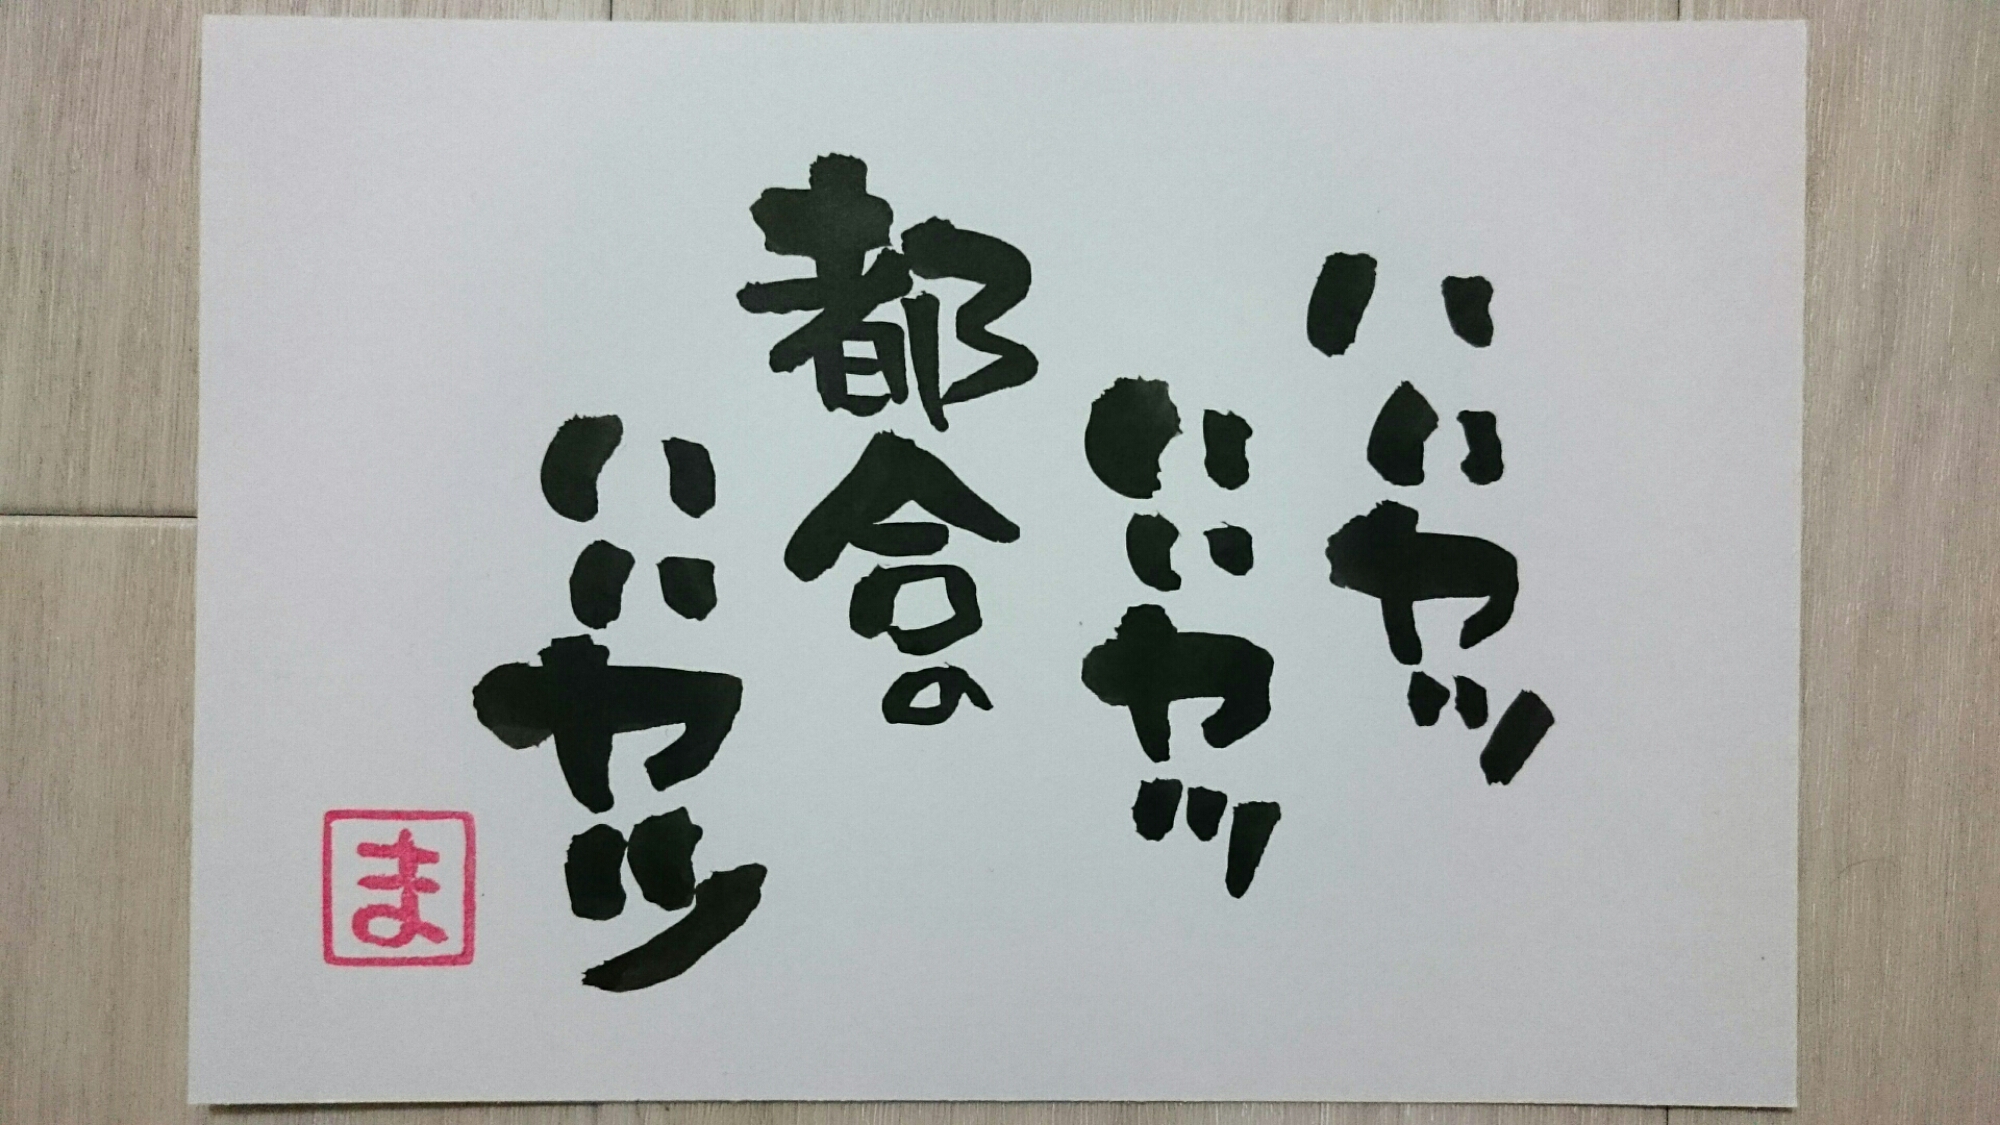 いいヤツ
いいヤツ
都合の
いいヤツ
ま